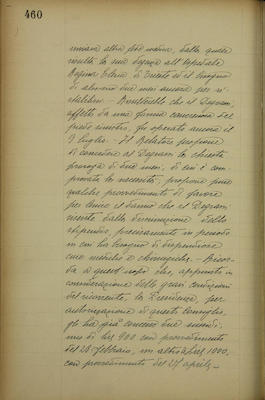 460
risulta la sua degenza all'Ospedale
Regina Elena di Trieste ed il bisogno
di almeno due mesi ancora per ri-
stabilirsi - che il Degrassi
affetto da una forma cancerosa del
piede sinistro, fu operato ancora il
9 luglio. - Il Relatore propone
di concedere al Degrassi la chiesta
proroga di due mesi, di cui è com-
provata la necessità, propone pure
qualche provvedimento di favore
per lenire il danno che al Degrassi
dalla diminuzione dello
stipendio, precisamente in periodo
in cui ha bisogno di dispendiose
cure mediche e chirurgiche. - Ricor-
da a questo scopo che, appunto in
considerazione delle gravi condizioni
del ricorrente, la Presidenza, per
autorizzazione di questo Consiglio,
gli ha già concesso due sussidi,
uno di lire 900 con provvedimento
del 26 febbraio, un altro di lire 1000.
con provvedimento del 27 aprile -